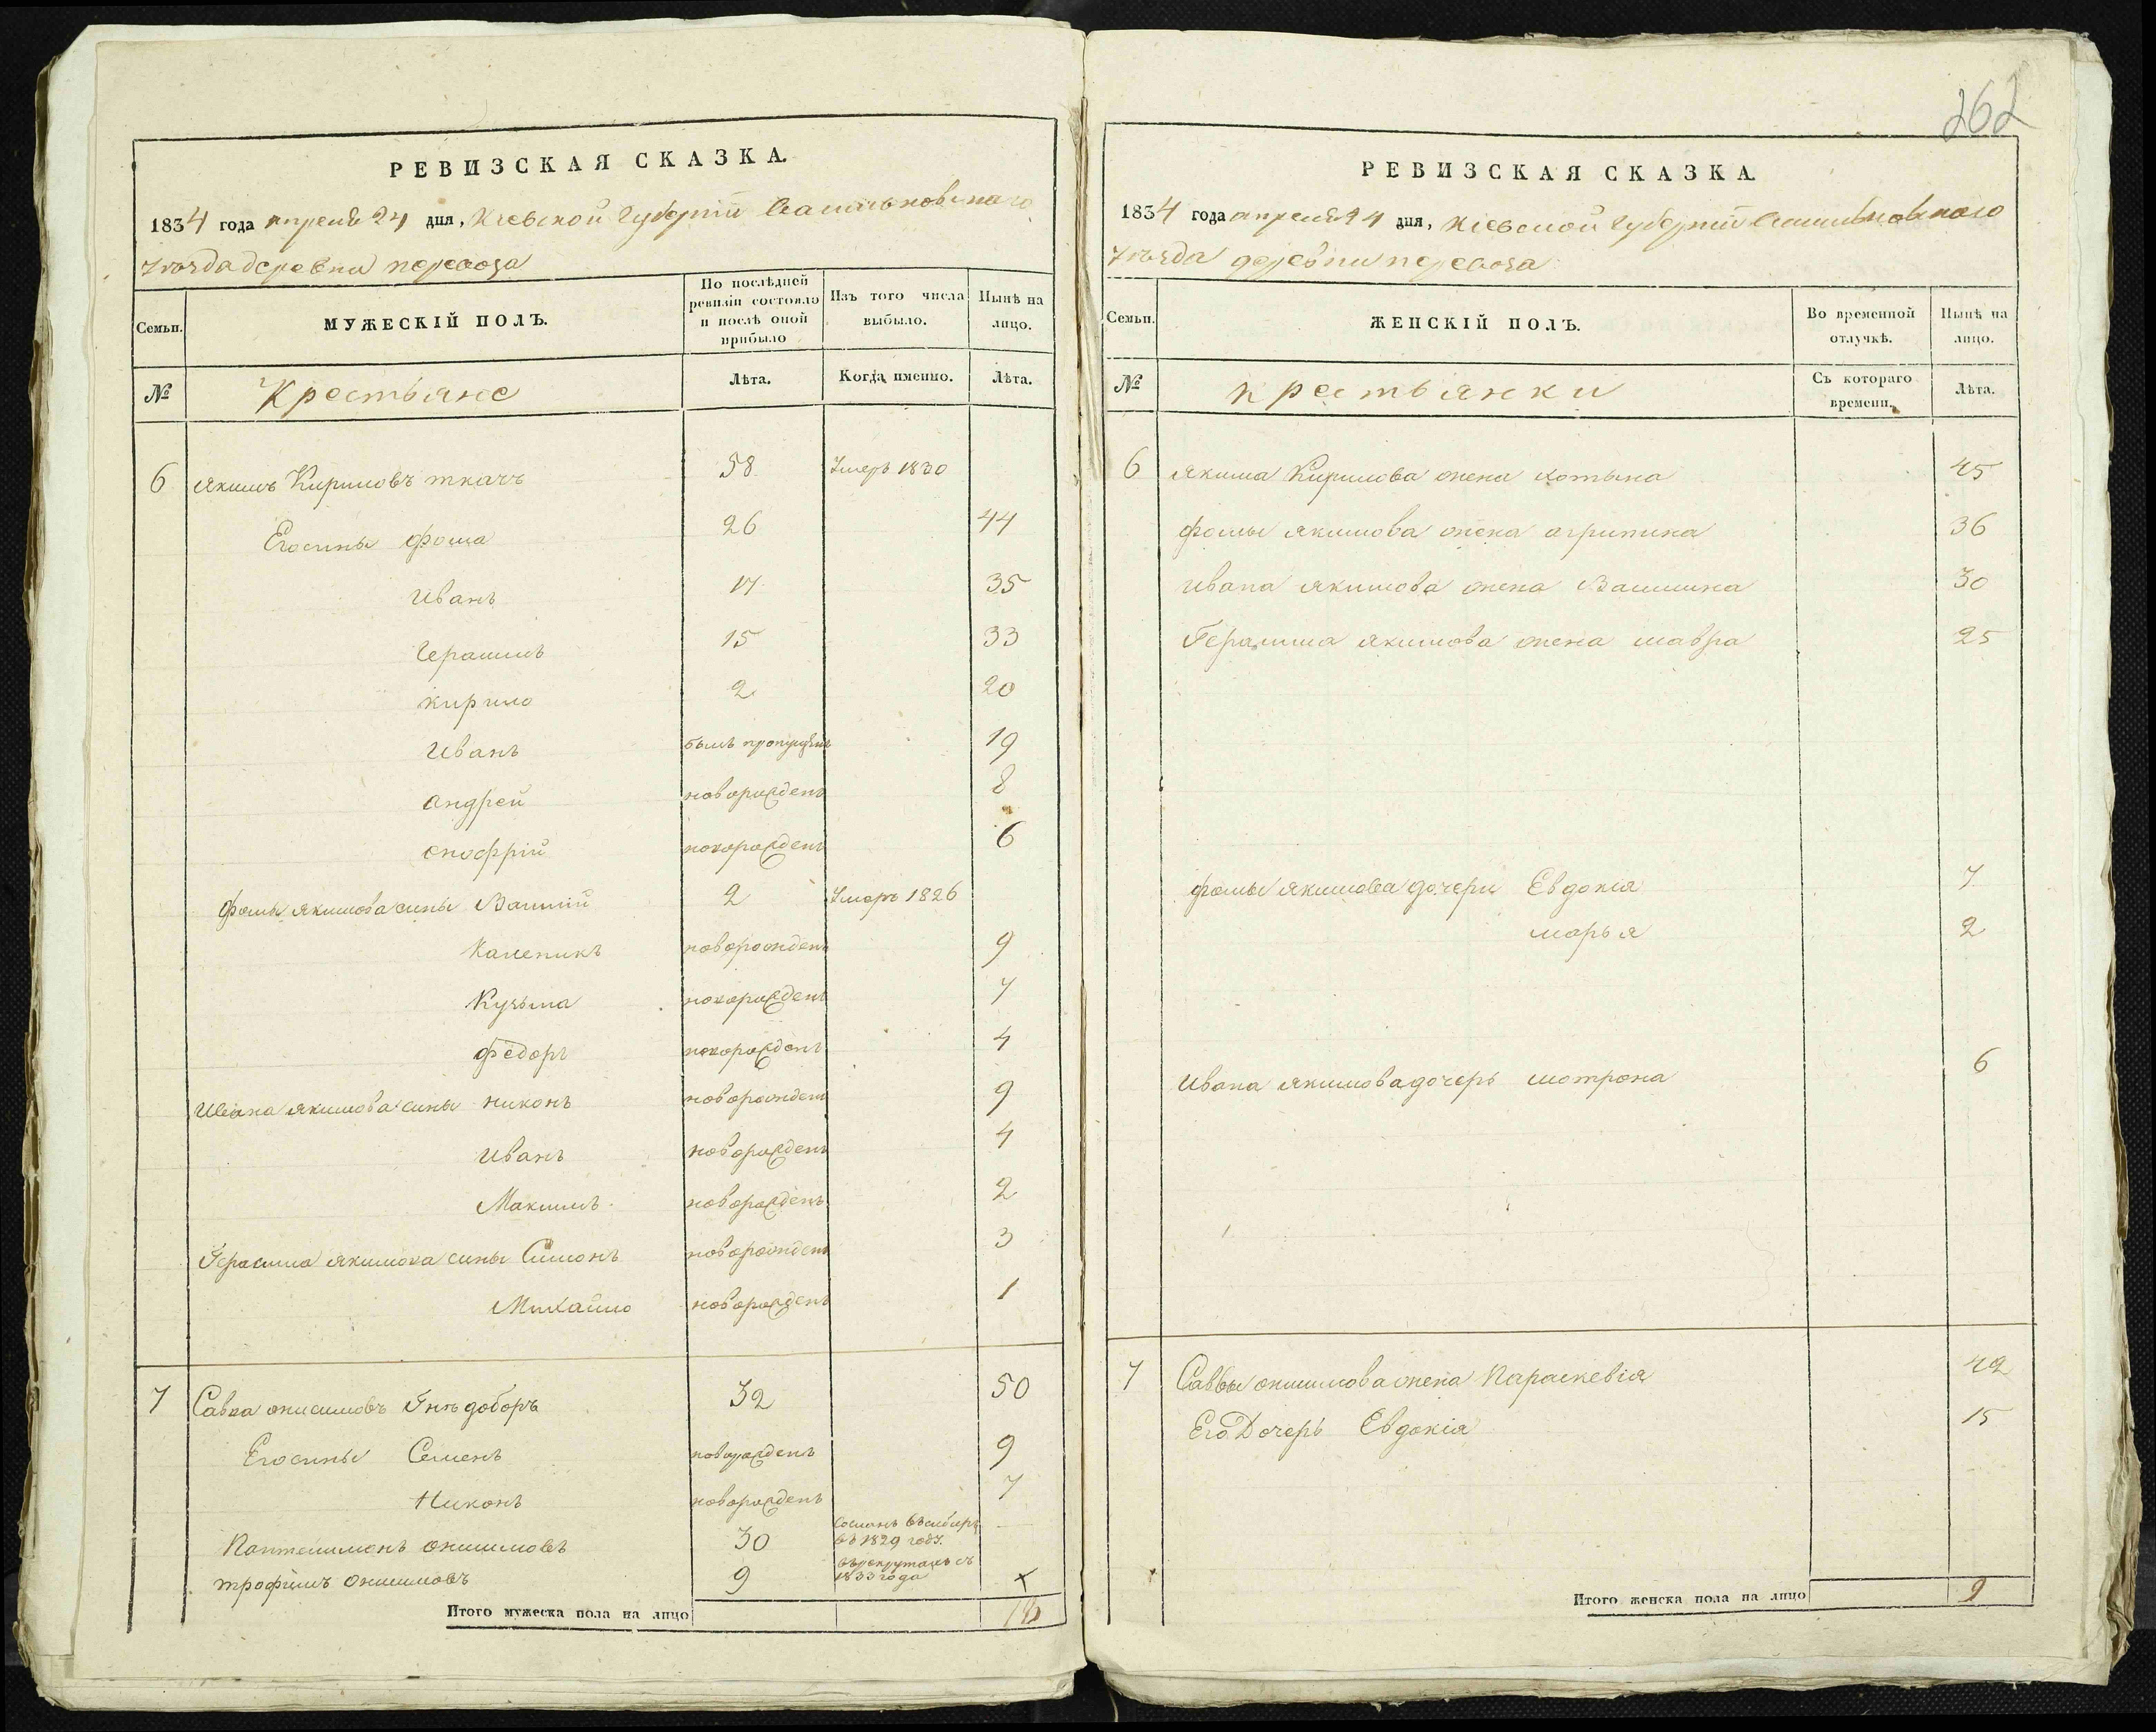 262
РЕВИЗСКАЯ СКАЗКА.
1834 года апреля 24 дня, Кіевской Губерніи Васильковскаго
уѣзда деревни перевоза
Семьи. МУЖЕСКІЙ ПОЛЪ. По послѣдней ревизіи состояло и послѣ оной прибыло Изъ того числа выбыло. Нынѣ на лицо.
№ Крестьяне Лѣта. Когда именно. Лѣта.
6 якимъ Кириловъ ткачъ 58 Умеръ 1830
Его сины фома 26 44
Иванъ 17 35
Герасимъ 15 33
кирило 2 20
Иванъ былъ пропущенъ 19
андрей новорожденъ 8
онофрій новорожденъ 6
фомы якимова сины Василій 2 Умеръ 1826
Каленикъ новорожденъ 9
Кузьма новорожденъ 7
федоръ новорожденъ 4
Ивана якимова сины никонъ новорожденъ 9
Иванъ новорожденъ 4
Максимъ новорожденъ 2
Герасима якимова сины Симонъ новорожденъ 3
Михайло новорожденъ 1
7 Савва онисимовъ Гнѣдоборъ 32 50
Его сины Семенъ новорожденъ 9
Никонъ новорожденъ 7
Пантелимонъ онисимовъ 30 Сосланъ въ сибирь въ 1829 году.
трофимъ Онисимовъ 9 въ рекрутахъ съ 1833 года
Итого мужеска пола на лицо 18
РЕВИЗСКАЯ СКАЗКА.
1834 года апреля 24 дня, Кіевской Губерніи Васильковскаго
уѣзда деревни перевоза
Семьи. ЖЕНСКІЙ ПОЛЪ. Во временной отлучкѣ. Нынѣ на лицо.
№ крестьянки Съ котораго времени. Лѣта.
6 якима Кирилова жена хотына 45
фомы якимова жена агрипина 36
Ивана якимова жена Василина 30
Герасима якимова жена мавра 25
фомы якимова дочери Евдокія 7
марья 2
Ивана якимова дочерь мотрона 6
7 Саввы онисимова жена Параскевія 42
Его Дочерь Евдокія 15
Итого женска пола на лицо 9